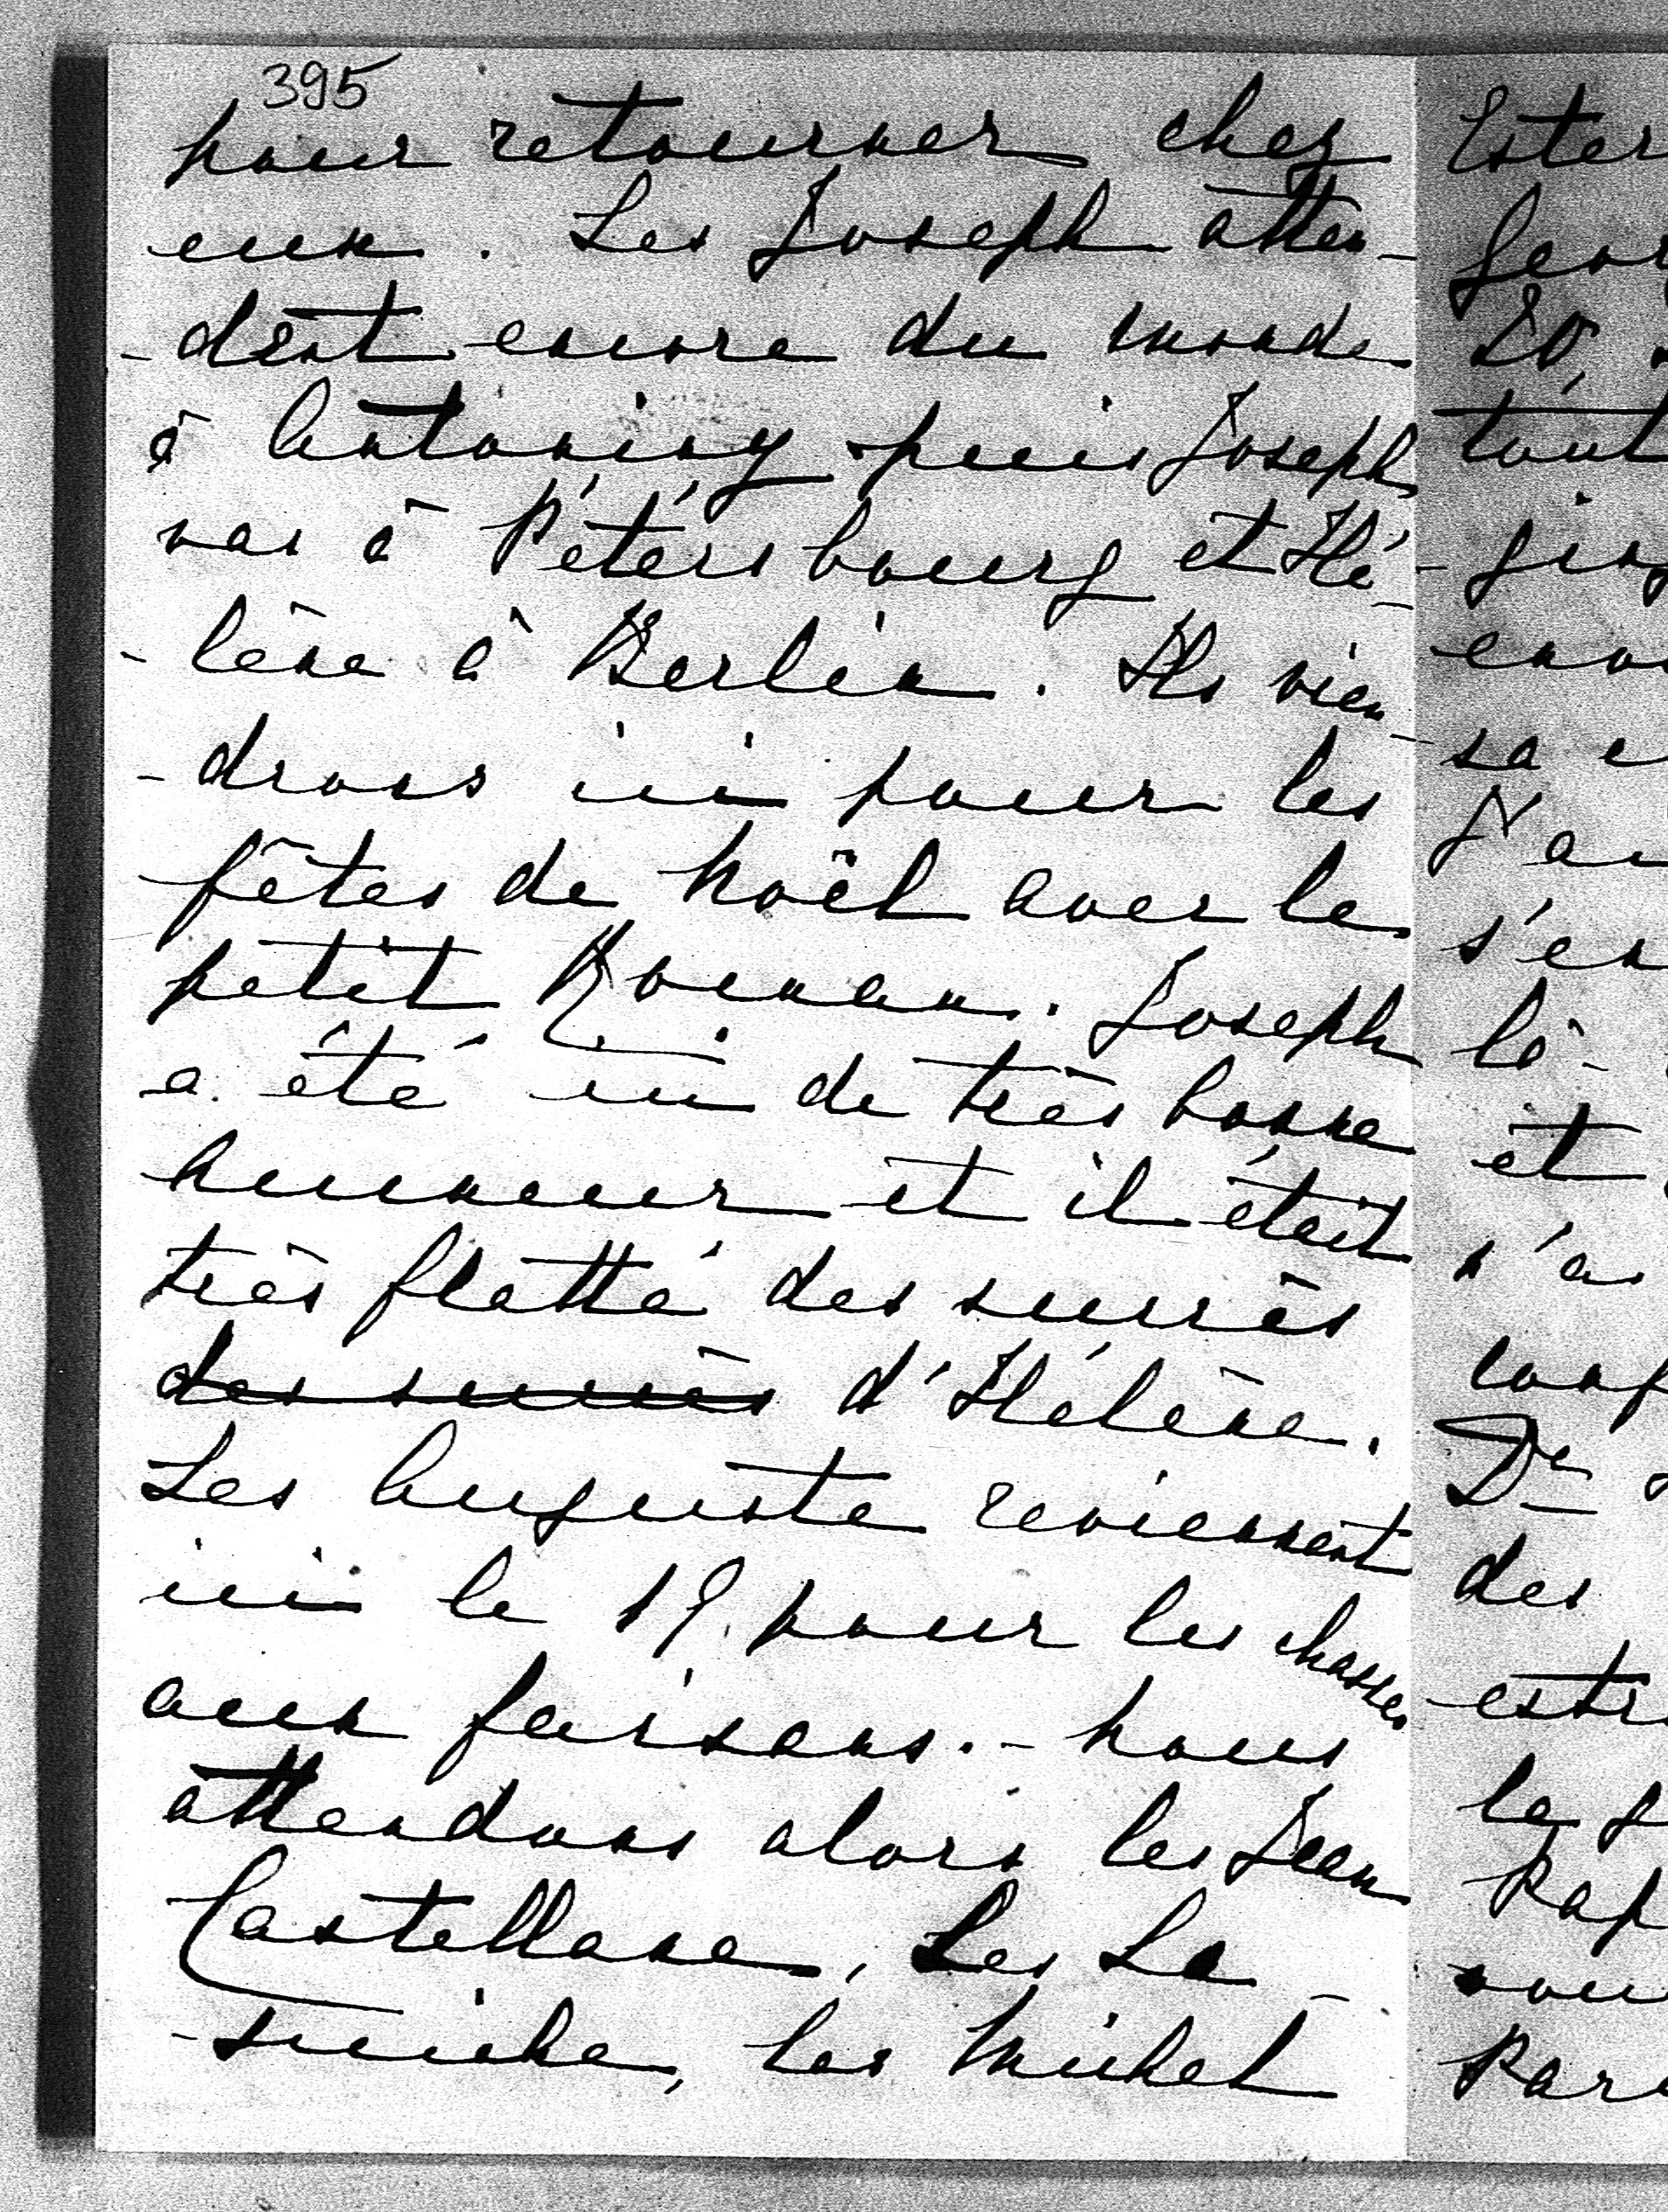 395
pour retourner chez
eux. Les Joseph atten-
-dent encore du monde
à Antoniny puis Joseph
vas à Pétérsbourg et Hé-
-lène à Berlin. Ils vien-
-drons ici pour les
fêtes de Noël avec le
petit Roman. Joseph
a été ici de très bonne
humeur et il était
très flatté des succès
des succès d'Hélène.
Les Auguste reviennent
ici le 19 pour les chasses
aux faisans. - Nous
attendons alors les Jean
Castellane, Les La-
-suiche, les Michel
Ester
Geor
20,
tout
sa
J'ai
s'en
là-
et
n'a
Dr
des
le
Pap
Par